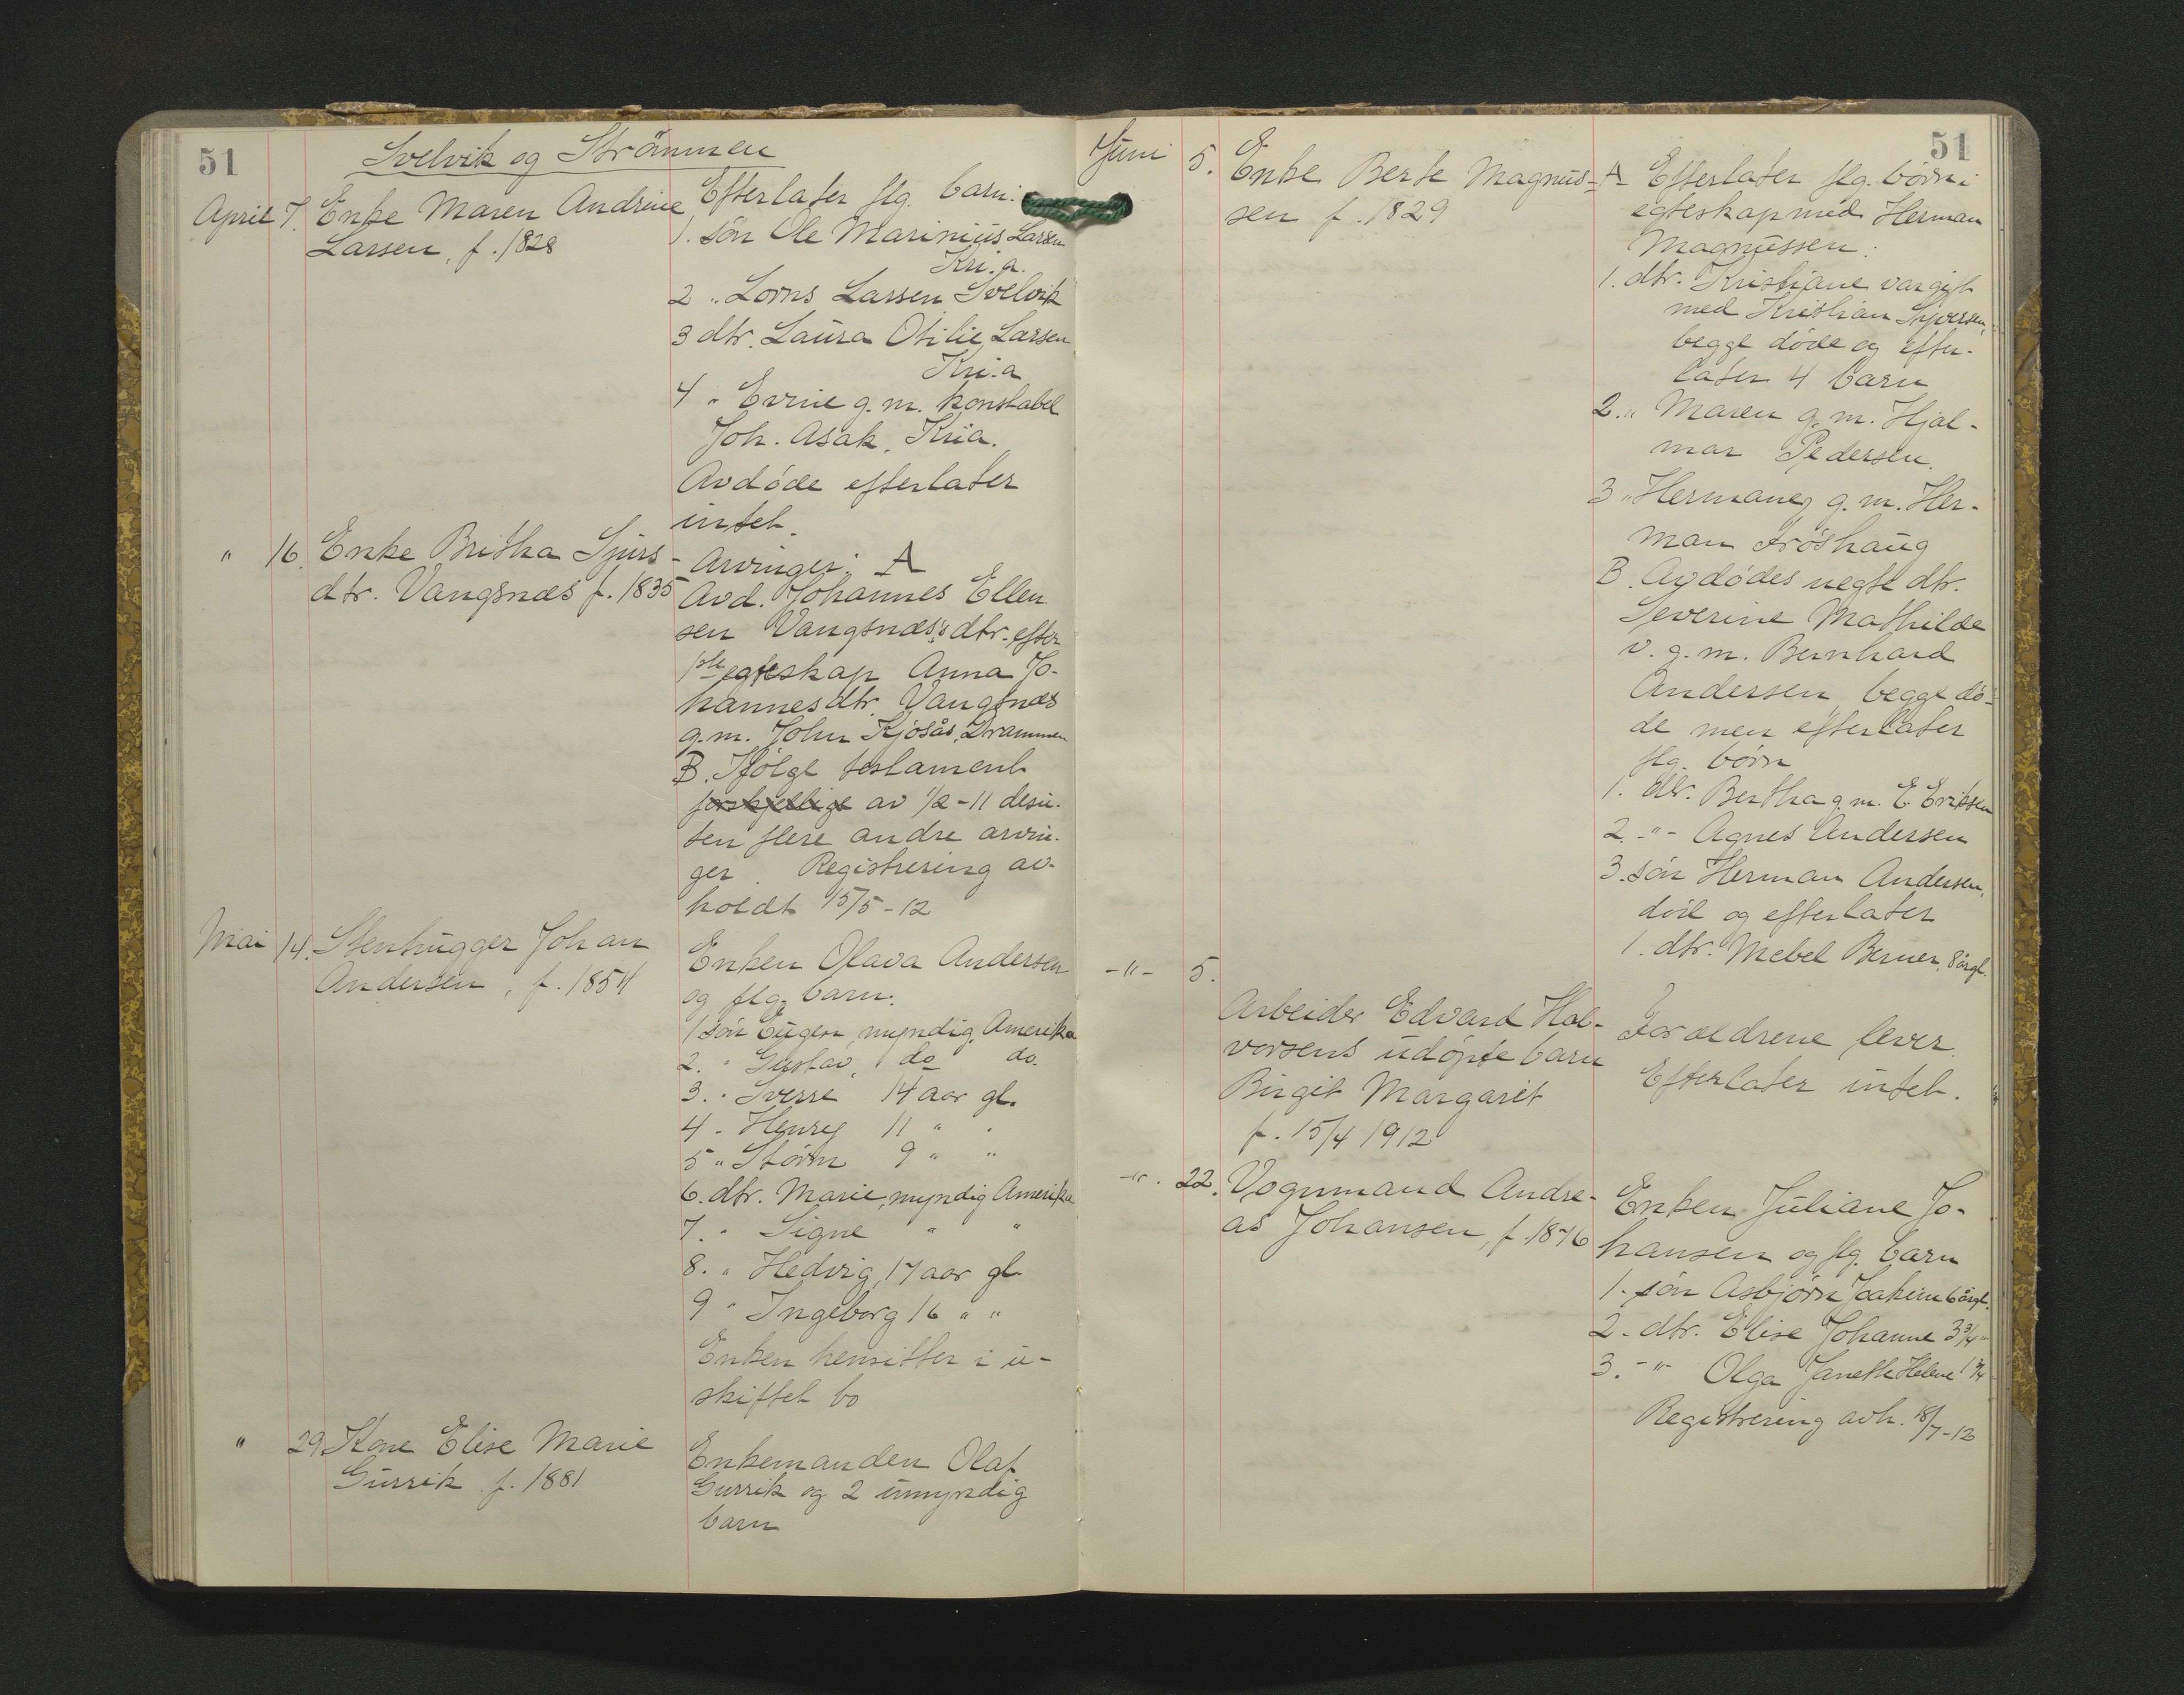 51
Svelvik og Strömmen
April 7. Enke Maren Andrine
Larsen, f. 1828
Efterlater flg. barn:
1. søn Ole Marinius Larsen
Kri.a.
2 " Lorns Larsen Svelvik
3 dtr. Laura Otilie Larsen
Kri.a
4 " Evrine g.m. konstabel
Joh. Asak, Kria.
Avdøde efterlater
intet.
" 16. Enke Britha Sjurs-
dtr. Vangsnæs f. 1835
Arvinger: A
Avd. Johannes Ellen
sen Vangsnæs's dtr. efter
1ste egteskap Anna Jo-
hannesdtr. Vangsnæs
g.m. John Kjøsås, Drammen
B. Ifølge testament
forskjellige av 1/2-11 desu-
ten flere andre arvin-
ger. Registrering av-
holdt 15/5-12
Mai 14. Stenhugger Johan
Andersen, f. 1854
Enken Olava Andersen
og flg. barn.
1 søn Eugen, myndig, Amerika
2. " Gustav, do do.
3. " Sverre 14 aar gl.
4 - Henry 11 " "
5 " Storm 9 " "
6. dtr. Marie, myndig Amerika
7. " Signe " "
8. " Hedvig, 17 aar gl.
9 " Ingeborg 16 " "
Enken hensitter i u-
skiftet bo
" 29 Kone Elise Marie
Gurrik f. 1881
Enkemanden Olaf
Gurrik og 2 umyndig
barn
51
Juni 5. Enke Berte Magnus-
sen f. 1829
A Efterlater flg. børn i
egteskap med Herman
Magnussen:
1. dtr. Kristiane var gift
med Kristian Syversen,
begge døde og efter-
later 4 barn
2. " Maren g.m. Hjal-
mar Pedersen.
3 " Hermane g.m. Her-
man Frøshaug
B. Avdødes uegte dtr.
Severine Mathilde
v. g.m. Bernhard
Andersen, begge dø-
de men efterlater
flg. børn
1. dtr. Bertha g.m. E. Eriksen
2. -"- Agnes Andersen
3. søn Herman Andersen,
død og efterlater
1. dtr. Mebel Berner, 8 årgl.
-"- 5.
Arbeider Edvard Hal-
vorsens udøpte barn
Birgit Margarit
f. 15/4 1912
Forældrene lever.
Efterlater intet.
-"- 22. Vognmand Andre-
as Johansen, f. 1876
Enken Juliane Jo-
hansen og flg. barn
1. søn Asbjørn Joakim 6 årgl.
2. dtr. Elise Johanne 3 3/4 "
3. -"- Olga Janethe Helene 1 3/4
Registrering avh. 18/7-12